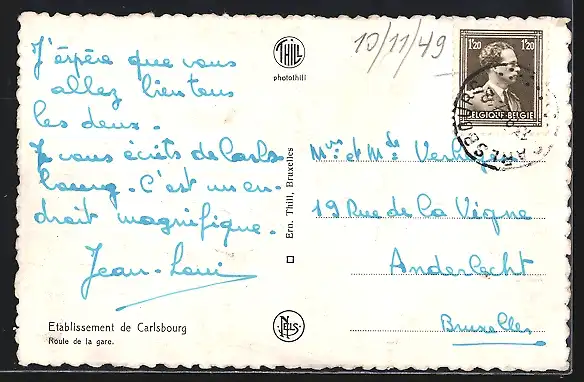 J'éspére que vous
allez bien tous
les deux.
Je vous écrits de Carls-
bourg. C'est un en-
droit magnifique.
Jean-Loui
Etablissement de Carlsbourg
Route de la gare.
THILL
photothill
Ern. Thill, Bruxelles
NELS
10/11/49
1'20 1'20
BELGIQUE-BELGIE
Mrs. et Mde
19 Rue de la Vigne
Anderlecht
Bruxelles